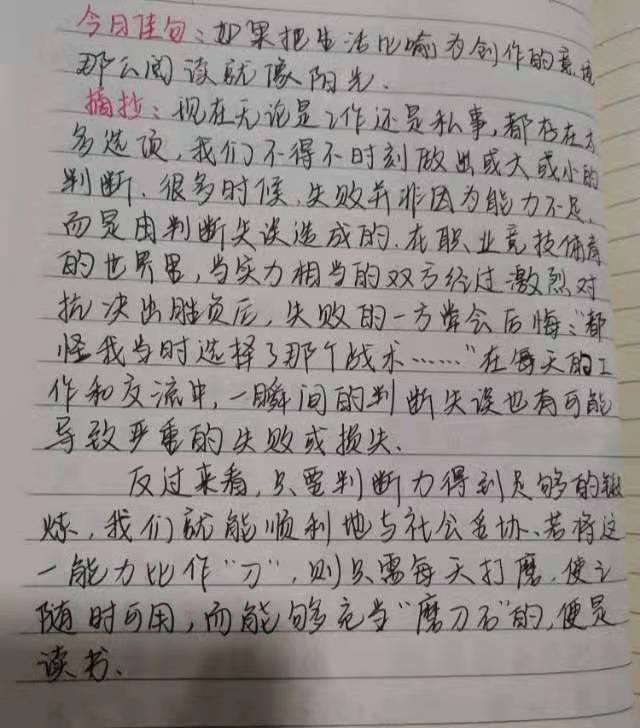 今日佳句：如果把生活比喻为创作的意境
那么阅读就像阳光.
摘抄：现在无论是工作还是私事，都存在太
多选项，我们不得不时刻做出或大或小的
判断. 很多时候，失败并非因为能力不足，
而是由判断失误造成的. 在职业竞技体育
的世界里，当实力相当的双方经过激烈对
抗决出胜负后，失败的一方常会后悔：“都
怪我当时选择了那个战术……”在每天的工
作和交流中，一瞬间的判断失误也有可能
导致严重的失败或损失.
反过来看，只要判断力得到足够的锻
炼，我们就能顺利地与社会妥协. 若将这
一能力比作“刀”，则只需每天打磨，使之
随时可用，而能够充当“磨刀石”的，便是
读书.